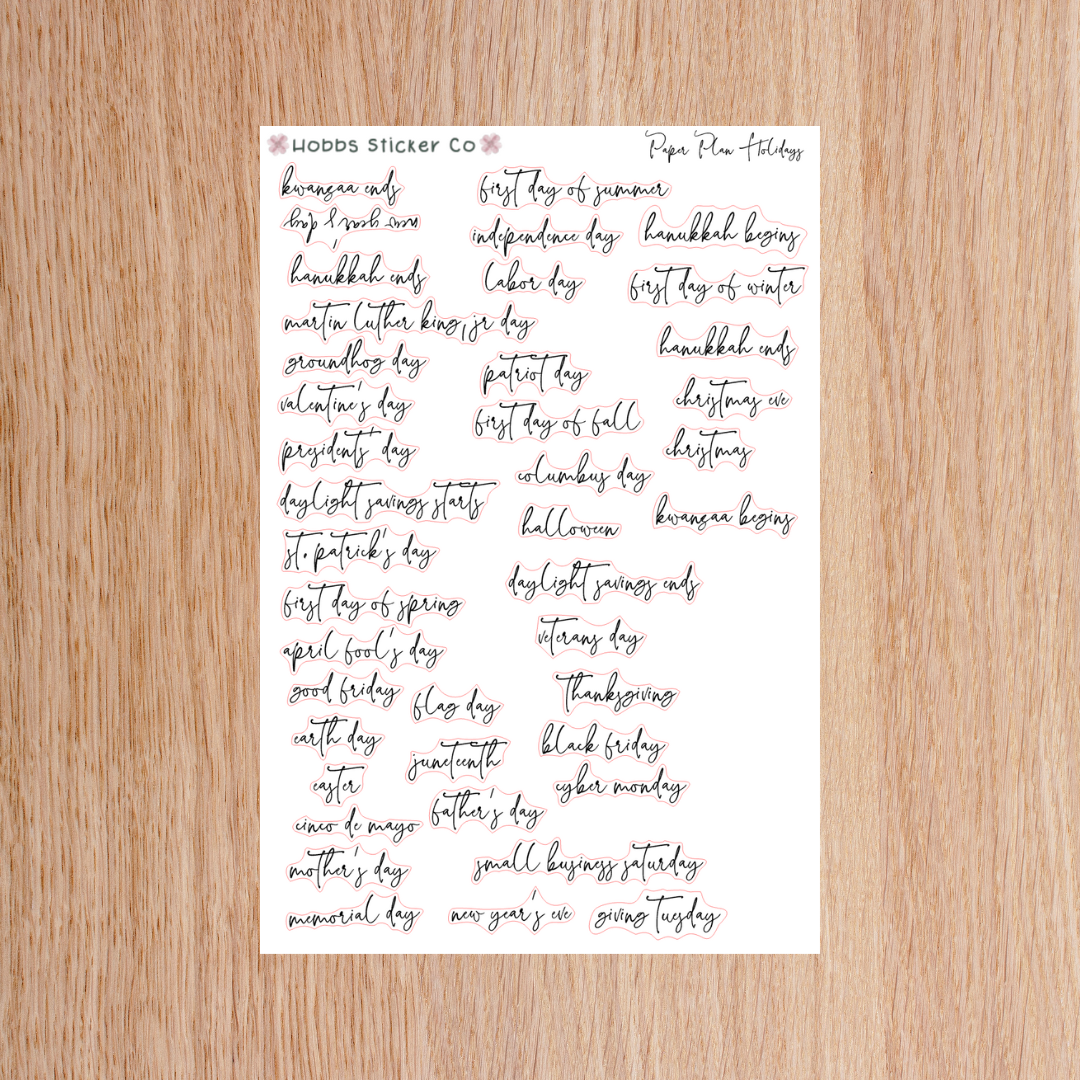 Hobbs Sticker Co
Paper Plan Holidays
kwanzaa ends
new year's day
hanukkah ends
martin luther king, jr day
groundhog day
valentine's day
presidents' day
daylight savings starts
st. patrick's day
first day of spring
april fool's day
good friday
earth day
easter
cinco de mayo
mother's day
memorial day
flag day
juneteenth
father's day
first day of summer
independence day
labor day
patriot day
first day of fall
columbus day
halloween
daylight savings ends
veterans day
Thanksgiving
black friday
cyber monday
small business saturday
new year's eve
giving Tuesday
hanukkah begins
first day of winter
hanukkah ends
christmas eve
christmas
kwanzaa begins